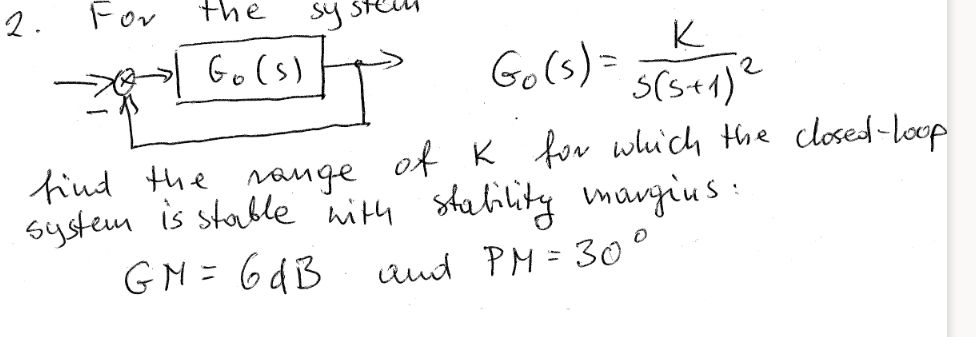 2. For the system
G₀(s)
G₀(s) = K / s(s+1)²
−
find the range of K for which the closed-loop
system is stable with stability margins:
GM = 6dB and PM = 30°